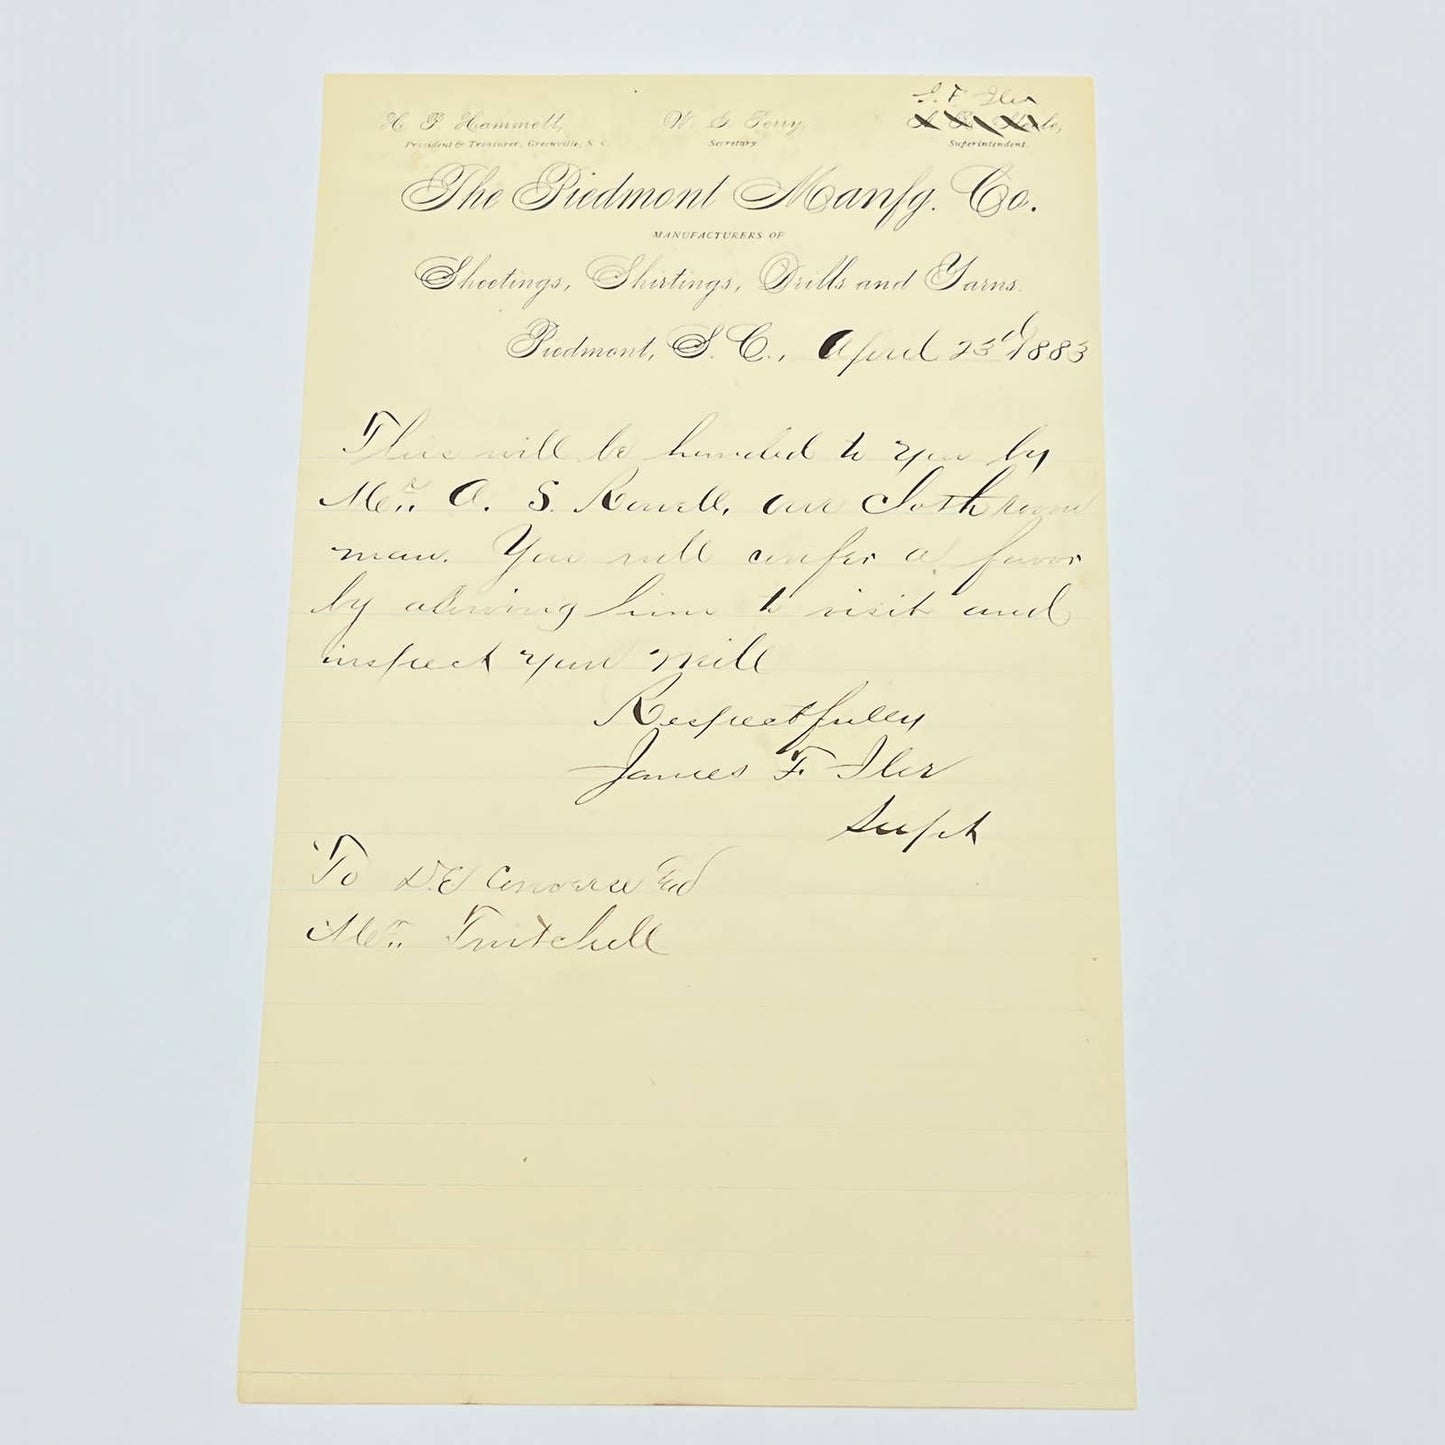 J. F. Iler
H. P. Hammett,
President & Treasurer, Greenville, S. C.
W. G. Perry
Secretary
Superintendent
The Piedmont Manfg. Co.
MANUFACTURERS OF
Sheetings, Shirtings, Drills and Yarns.
Piedmont, S. C., April 23d 1883
This will be handed to you by
Mr. A. S. Rowell, our Cloth room
man. You will confer a favor
by allowing him to visit and
inspect your mill
Respectfully
James F. Iler
Supt
To D. E. Converse
Mr. Twitchell